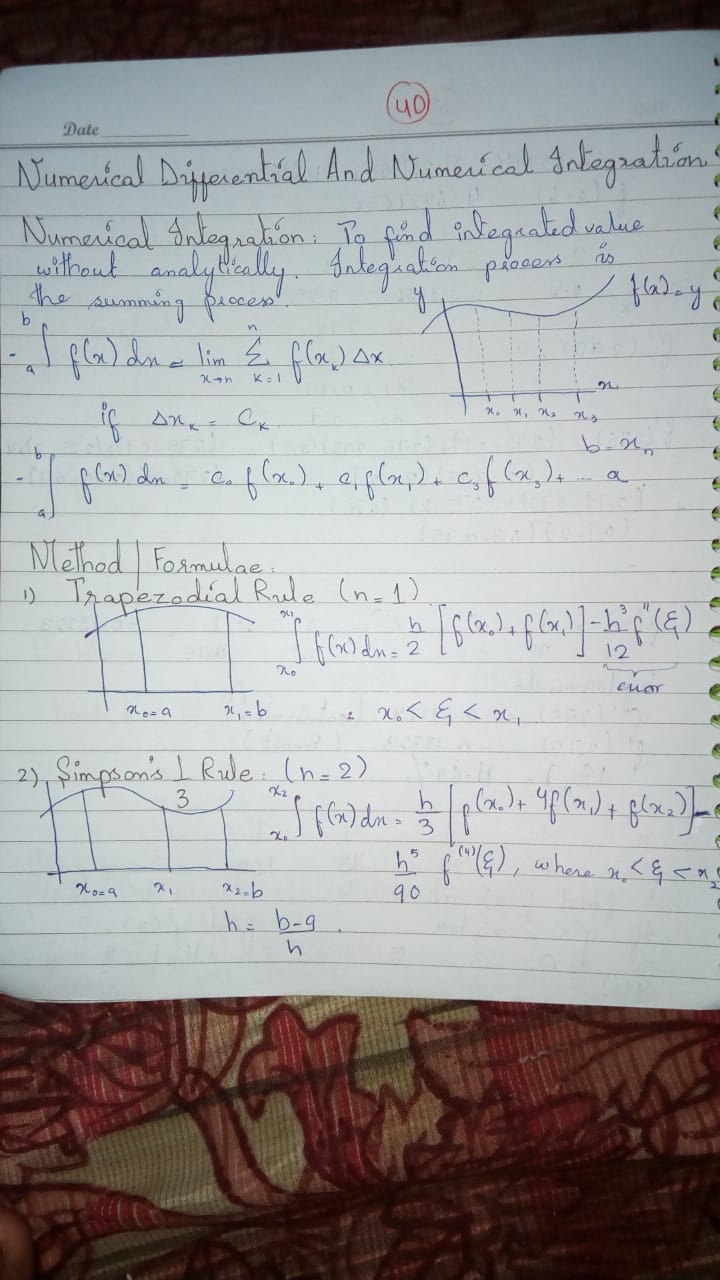 40
Date
Numerical Differential And Numerical Integration
Numerical Integration: To find integrated value
without analytically. Integration process is
the summing process.
y f(x)=y
- ∫ₐᵇ f(x) dx = lim x→n Σ k=1 n f(xₖ) Δx
x
x₀ x₁ x₂ x₃
if Δxₖ = Cₖ
b=xₙ
- ∫ₐᵇ f(x) dx = c₀ f(x₀) + c₁f(x₁) + c₃f(x₃) + ... a
Method / Formulae:
1) Trapezodial Rule (n=1)
∫ₓ₀ˣ¹ f(x) dx = h/2 [f(x₀) + f(x₁)] - h³/12 f''(ξ)
error
x₀=a x₁=b : x₀ < ξ < x₁
2) Simpson's 1/3 Rule: (n=2)
∫ₓ₀ˣ² f(x) dx = h/3 [f(x₀) + 4f(x₁) + f(x₂)] -
h⁵/90 f⁽⁴⁾(ξ), where x₀ < ξ < x₂
x₀=a x₁ x₂=b
h = b-a/h